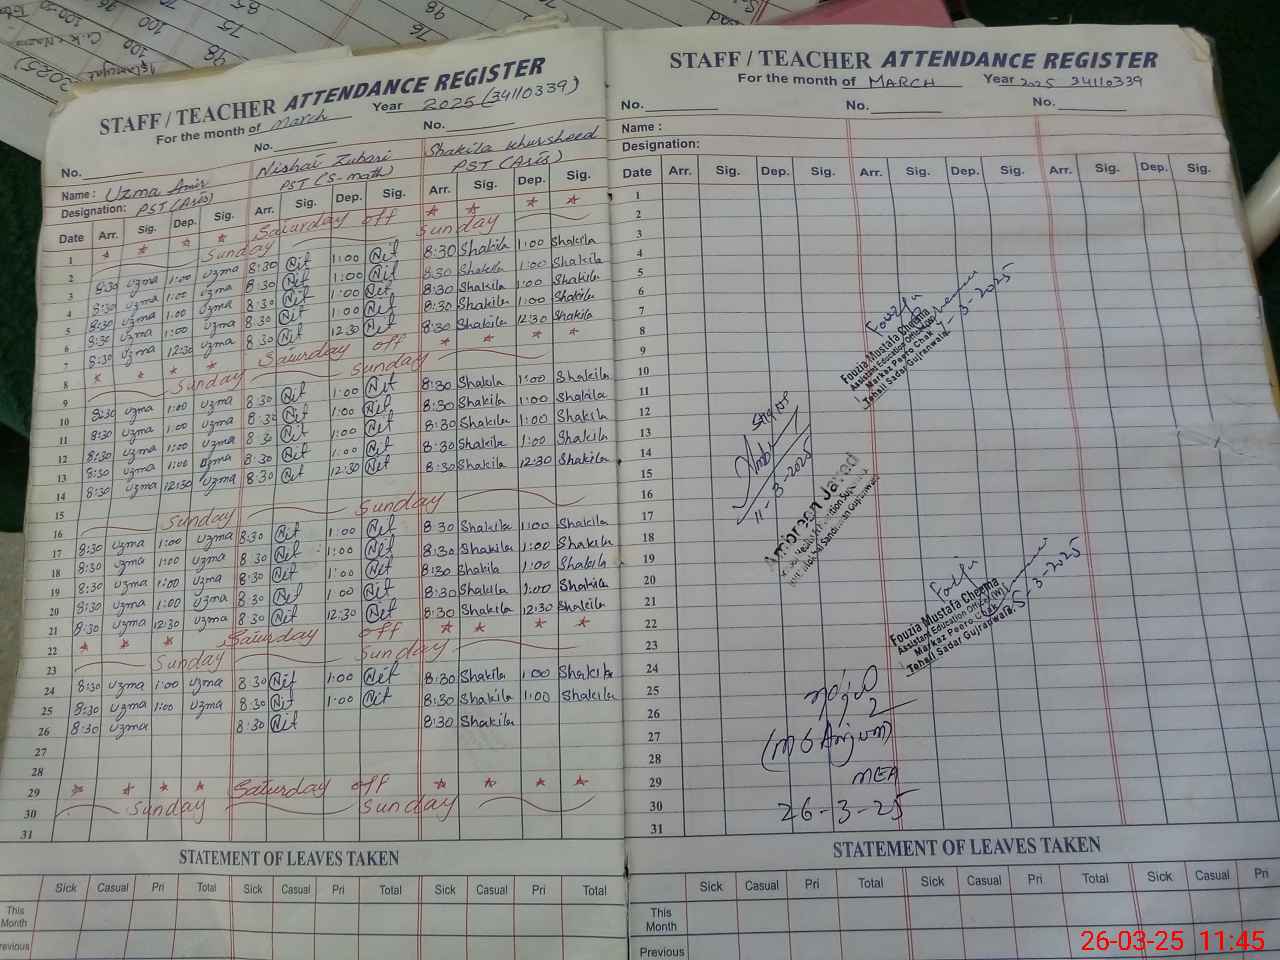 STAFF / TEACHER ATTENDANCE REGISTER
For the month of March Year 2025 (34110339)
No. No. No.
Name : Uzma Amir Nishai Zubari Shakila Khursheed
Designation: PST (Arts) PST (S-math) PST (Arts)
Date Arr. Sig. Dep. Sig. Arr. Sig. Dep. Sig. Arr. Sig. Dep. Sig.
1 * * * * Saturday off * * * *
2 Sunday Sunday
3 8:30 Uzma 1:00 Uzma 8:30 Nit 1:00 Nit 8:30 Shakila 1:00 Shakila
4 8:30 Uzma 1:00 Uzma 8:30 Nit 1:00 Nit 8:30 Shakila 1:00 Shakila
5 8:30 Uzma 1:00 Uzma 8:30 Nit 1:00 Nit 8:30 Shakila 1:00 Shakila
6 8:30 Uzma 1:00 Uzma 8:30 Nit 1:00 Nit 8:30 Shakila 1:00 Shakila
7 8:30 Uzma 12:30 Uzma 8:30 Nit 12:30 Nit 8:30 Shakila 12:30 Shakila
8 * * * * Saturday off * * * *
9 Sunday Sunday
10 8:30 Uzma 1:00 Uzma 8:30 Nit 1:00 Nit 8:30 Shakila 1:00 Shakila
11 8:30 Uzma 1:00 Uzma 8:30 Nit 1:00 Nit 8:30 Shakila 1:00 Shakila
12 8:30 Uzma 1:00 Uzma 8:30 Nit 1:00 Nit 8:30 Shakila 1:00 Shakila
13 8:30 Uzma 1:00 Uzma 8:30 Nit 1:00 Nit 8:30 Shakila 1:00 Shakila
14 8:30 Uzma 12:30 Uzma 8:30 Nit 12:30 Nit 8:30 Shakila 12:30 Shakila
15
16 Sunday Sunday
17 8:30 Uzma 1:00 Uzma 8:30 Nit 1:00 Nit 8:30 Shakila 1:00 Shakila
18 8:30 Uzma 1:00 Uzma 8:30 Nit 1:00 Nit 8:30 Shakila 1:00 Shakila
19 8:30 Uzma 1:00 Uzma 8:30 Nit 1:00 Nit 8:30 Shakila 1:00 Shakila
20 8:30 Uzma 1:00 Uzma 8:30 Nit 1:00 Nit 8:30 Shakila 1:00 Shakila
21 8:30 Uzma 12:30 Uzma 8:30 Nit 12:30 Nit 8:30 Shakila 12:30 Shakila
22 * * * Saturday off * * * *
23 Sunday Sunday
24 8:30 Uzma 1:00 Uzma 8:30 Nit 1:00 Nit 8:30 Shakila 1:00 Shakila
25 8:30 Uzma 1:00 Uzma 8:30 Nit 1:00 Nit 8:30 Shakila 1:00 Shakila
26 8:30 Uzma 8:30 Nit 8:30 Shakila
27
28
29 * * * * Saturday off * * * *
30 Sunday Sunday
31
STATEMENT OF LEAVES TAKEN
Sick Casual Pri Total Sick Casual Pri Total Sick Casual Pri Total
This Month
Previous
STAFF / TEACHER ATTENDANCE REGISTER
For the month of MARCH Year 2025 34110339
No. No. No.
Name :
Designation:
Date Arr. Sig. Dep. Sig. Arr. Sig. Dep. Sig. Arr. Sig. Dep. Sig.
1
2
3
4
5
6
7
8
9
10
11
12
13
14
15
16
17
18
19
20
21
22
23
24
25
26
27
28
29
30
31
7-3-2025
Fouzia Mustafa Cheema
Assistant Education Officer (W)
Markaz Peero Chak
Tehsil Sadar Gujranwala
11-3-2025
Ambreen Javaad
5-3-2025
Fouzia Mustafa Cheema
Assistant Education Officer (W)
Markaz Peero Chak
Tehsil Sadar Gujranwala
(M S Anjum)
MEA
26-3-25
STATEMENT OF LEAVES TAKEN
Sick Casual Pri Total Sick Casual Pri Total Sick Casual Pri
This Month
Previous
26-03-25 11:45